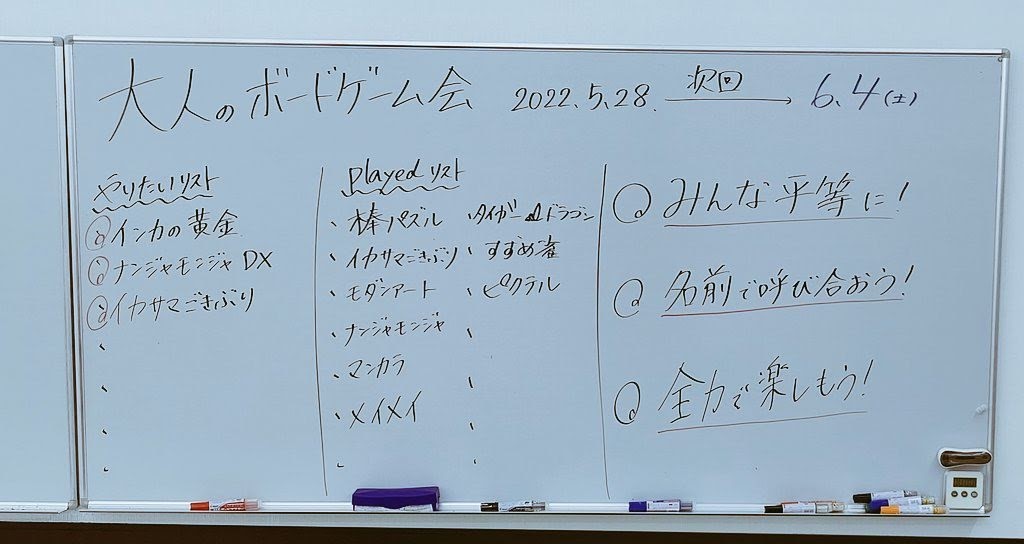 大人のボードゲーム会 2022.5.28. 次回 → 6.4(土)
やりたいリスト
インカの黄金
ナンジャモンジャDX
イカサマごきぶり
Playedリスト
・棒パズル
・イカサマごきぶり
・モダンアート
・ナンジャモンジャ
・マンカラ
・メイメイ
・タイガー&ドラゴン
・すずめ雀
・ピクテル
みんな平等に!
名前で呼び合おう!
全力で楽しもう!